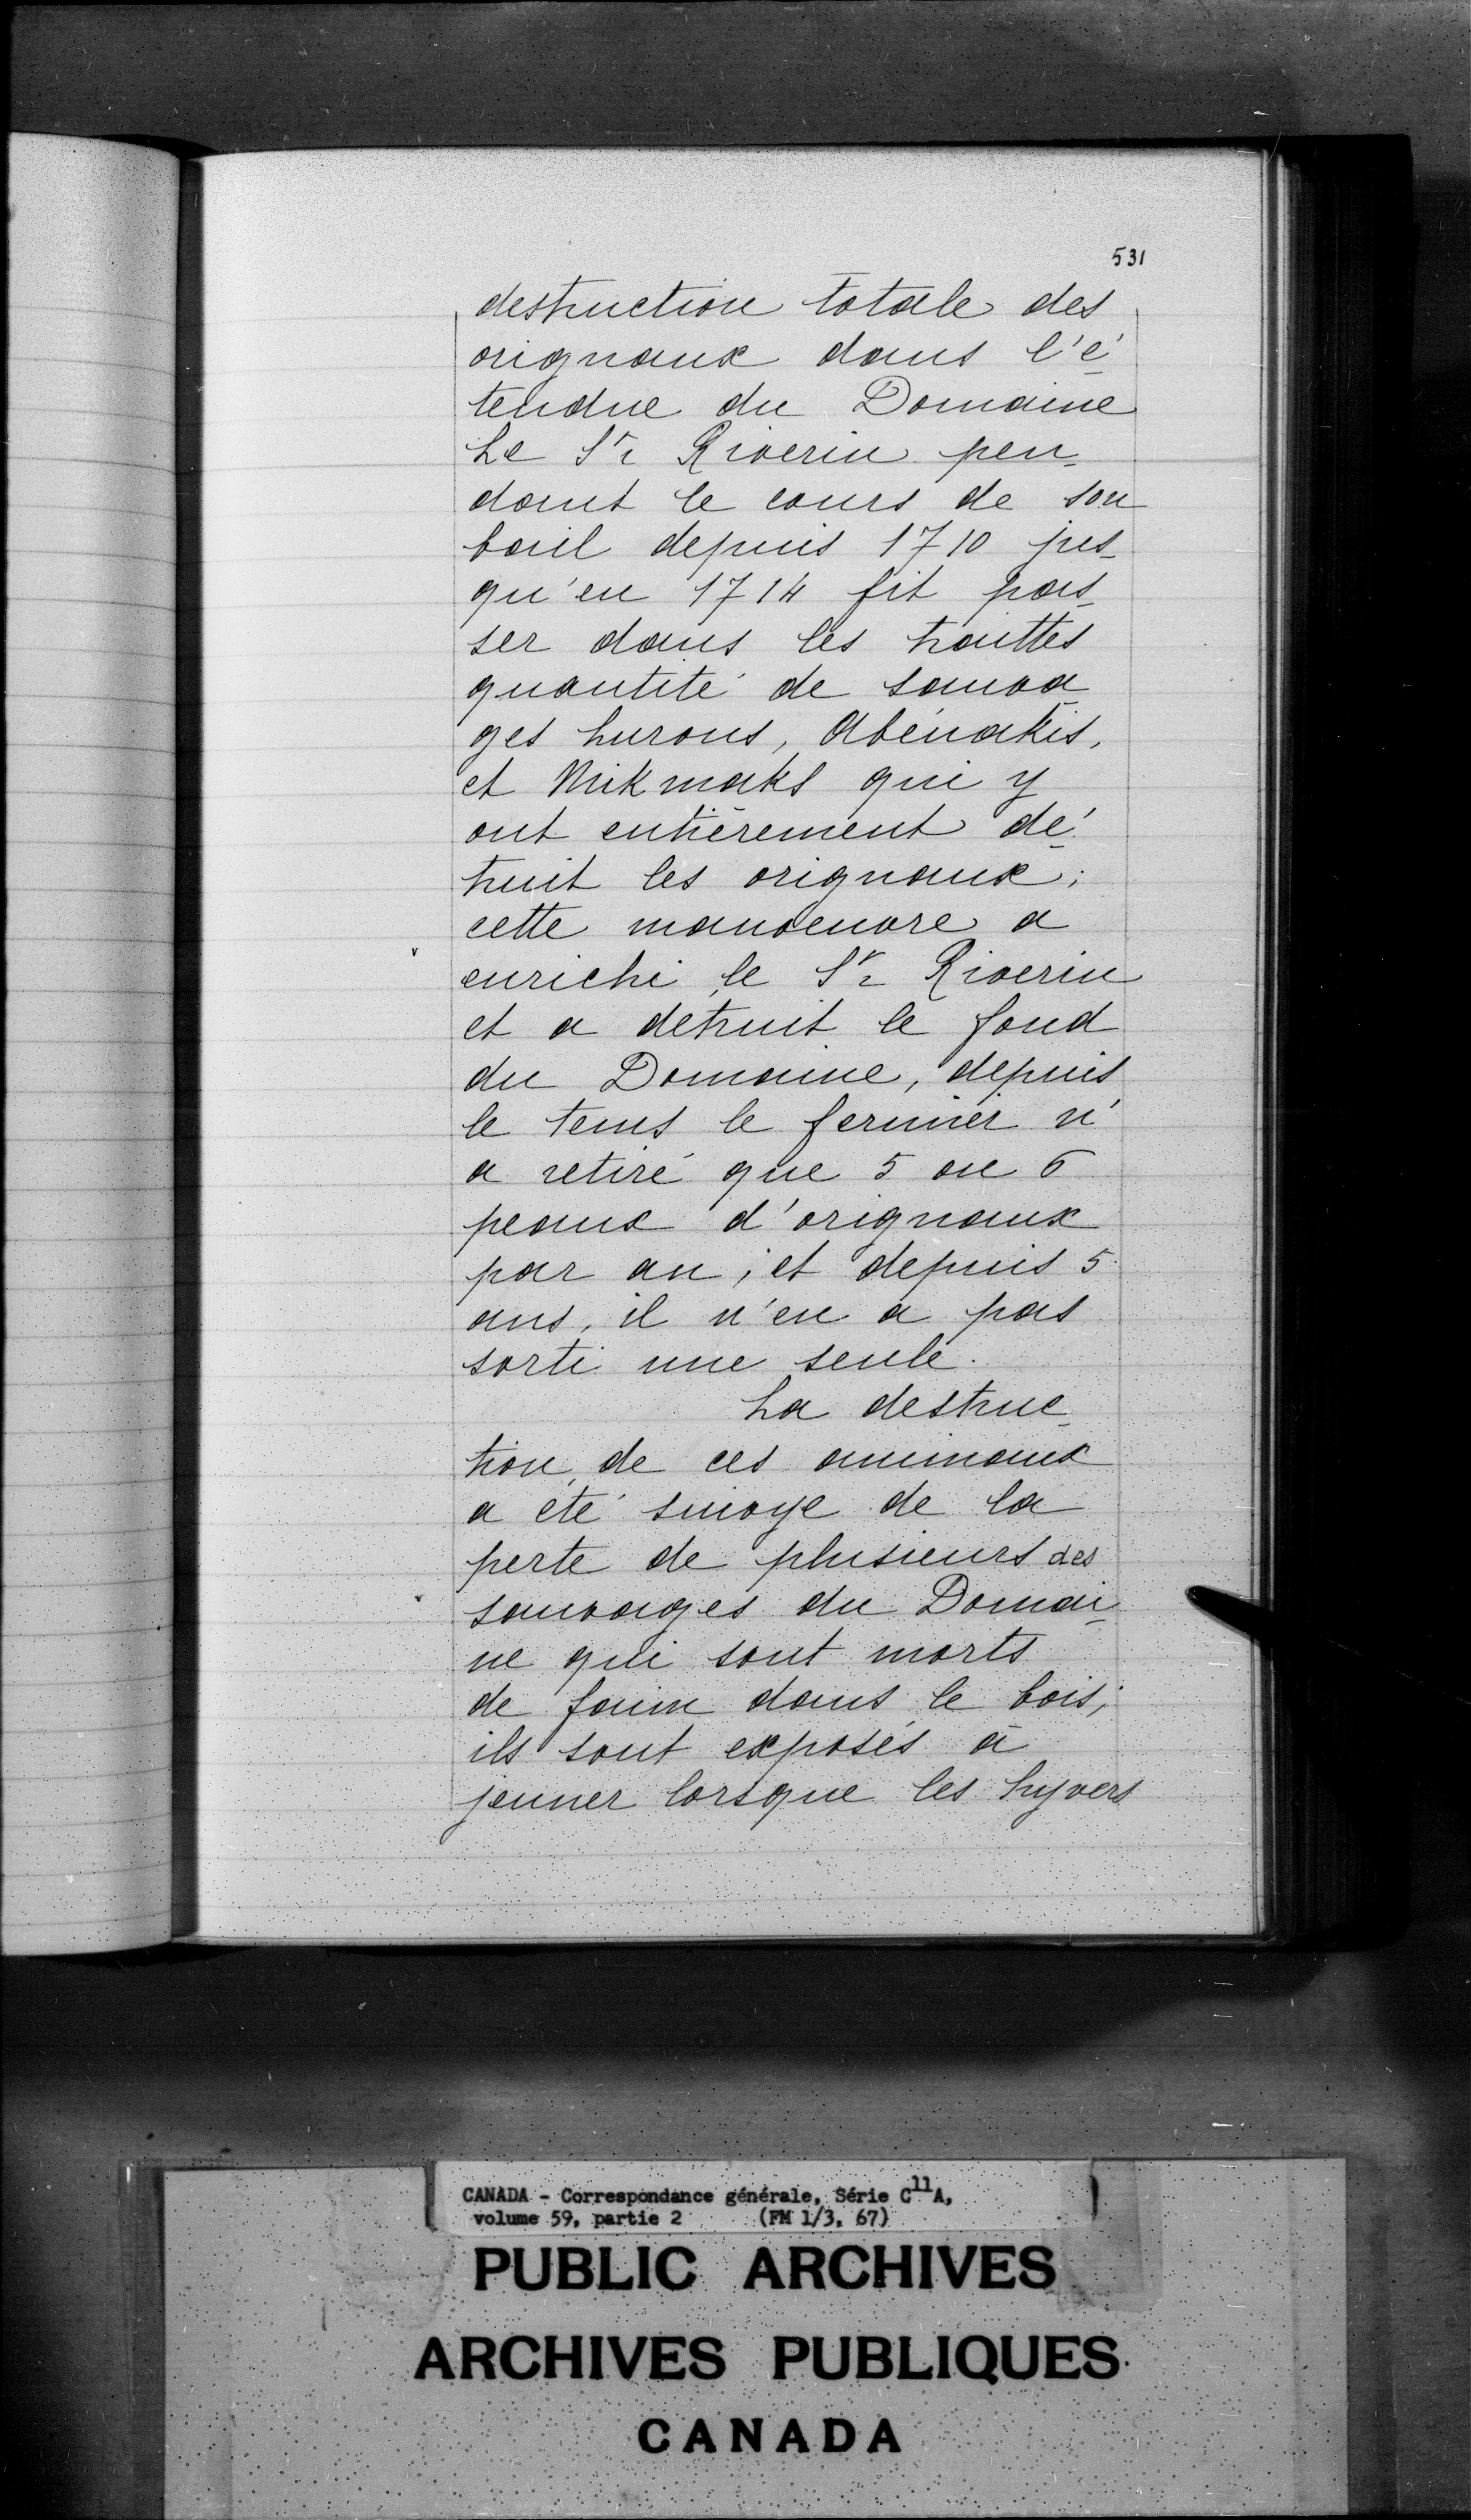 531
destruction totale des
orignaux dans l'é-
tendue du Domaine
Le Sr. Riverin pen-
dant le cours de son
bail depuis 1710 jus-
qu'en 1714 fit pas-
ser dans les traittes
quantité de sauva-
ges hurons, Abénakis,
et Mikmaks qui y
ont entièrement dé-
truit les orignaux;
cette manoeuvre a
enrichi le Sr. Riverin
et a detruit le fond
du Domaine, depuis
le tems le fermier n'
a retiré que 5 ou 6
peaux d'orignaux
par an; et depuis 5
ans, il n'en a pas
sorti une seule.
La destruc-
tion de ces animaux
a été suivye de la
perte de plusieurs des
sauvages du Domai-
ne qui sont morts
de faim dans le bois;
ils sont exposés à
jeuner lorsque les hyvers
CANADA - Correspondance générale, Série C11A,
volume 59, partie 2 (FM 1/3, 67)
PUBLIC ARCHIVES
ARCHIVES PUBLIQUES
CANADA